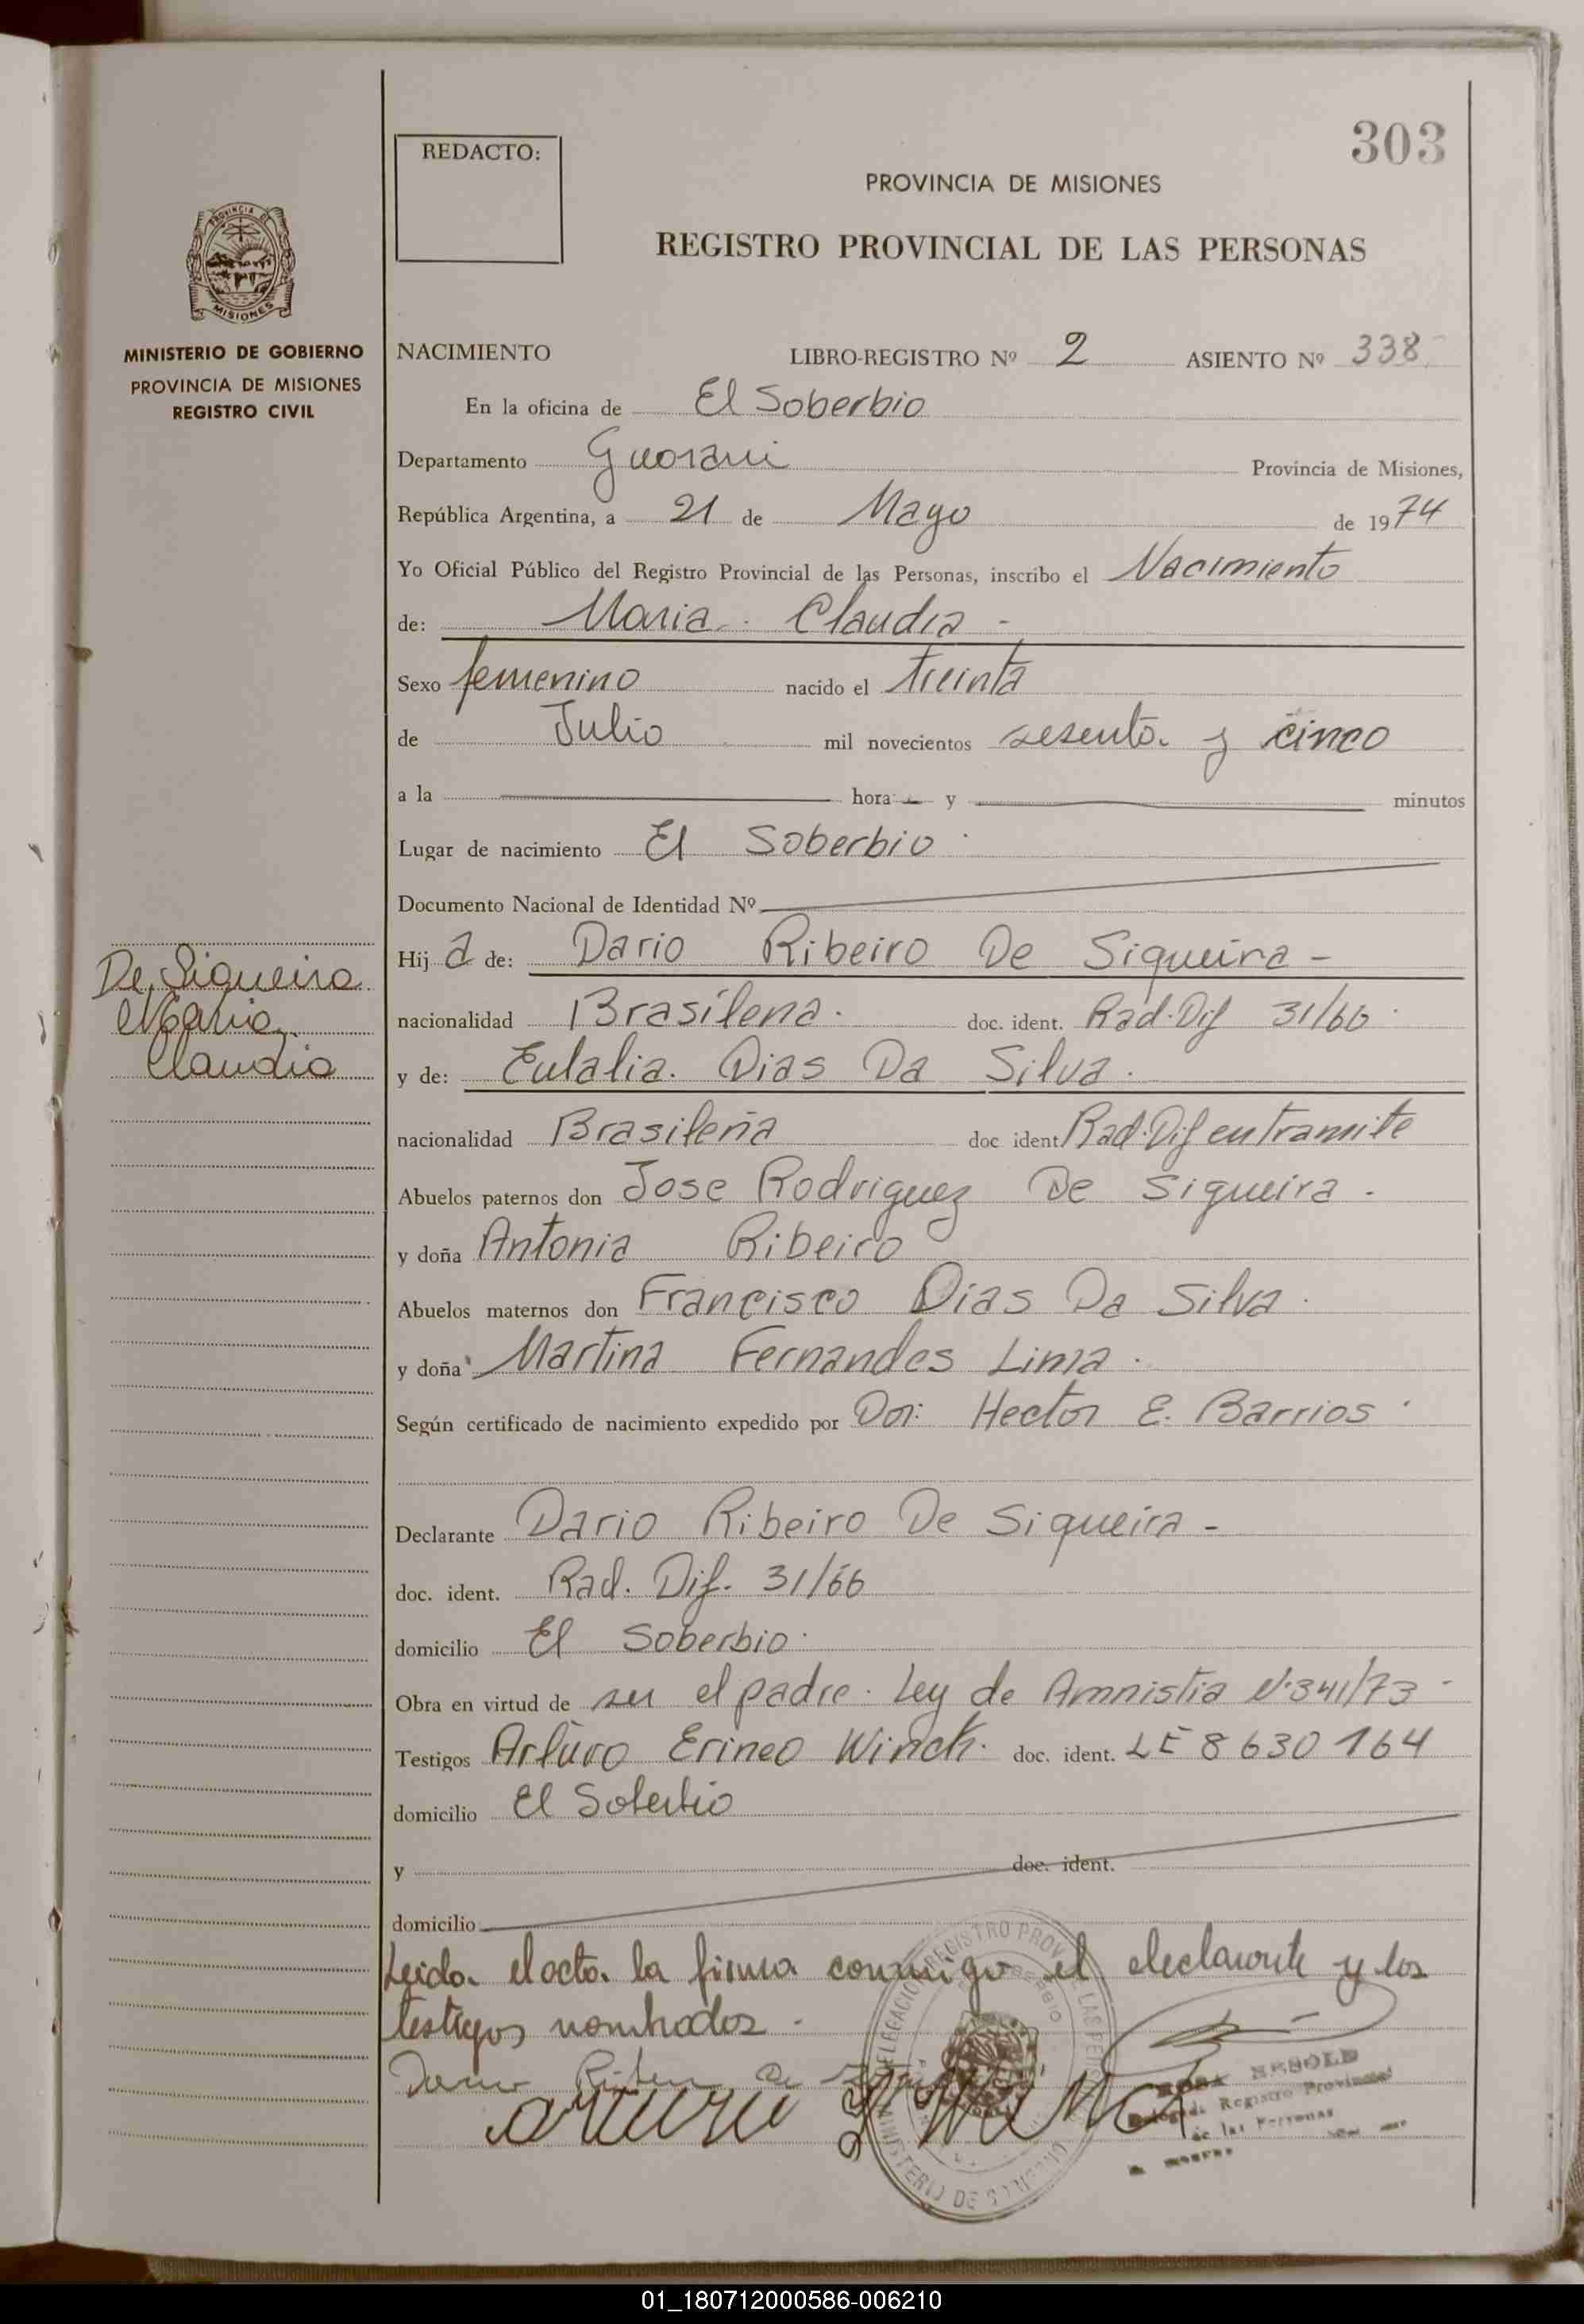 303
REDACTO:
PROVINCIA DE MISIONES
REGISTRO PROVINCIAL DE LAS PERSONAS
PROVINCIA DE
MISIONES
MINISTERIO DE GOBIERNO
PROVINCIA DE MISIONES
REGISTRO CIVIL
NACIMIENTO LIBRO-REGISTRO Nº 2 ASIENTO Nº 338
En la oficina de El Soberbio
Departamento Guarani Provincia de Misiones,
República Argentina, a 21 de Mayo de 1974
Yo Oficial Público del Registro Provincial de las Personas, inscribo el Nacimiento
de: Maria Claudia -
Sexo femenino nacido el treinta
de Julio mil novecientos sesenta y cinco
a la hora y minutos
Lugar de nacimiento El Soberbio
Documento Nacional de Identidad Nº
Hij a de: Dario Ribeiro De Siqueira -
nacionalidad Brasilena. doc. ident. Rad. Dif 31/66
y de: Eulalia. Dias Da Silva.
nacionalidad Brasileña doc ident Rad. Dif en tramite
Abuelos paternos don Jose Rodriguez De Siqueira.
y doña Antonia Ribeiro
Abuelos maternos don Francisco Dias Da Silva.
y doña Martina Fernandes Lima.
Según certificado de nacimiento expedido por Dor: Hector E. Barrios
Declarante Dario Ribeiro De Siqueira -
doc. ident. Rad. Dif. 31/66
domicilio El Soberbio.
Obra en virtud de ser el padre. Ley de Amnistia Nº 341/73 -
Testigos Arturo Erineo Winck. doc. ident. LE 8630164
domicilio El Soberbio
y doc. ident.
domicilio
Leida el acta la firma conmigo el declarante y los
testigos nombrados.
De Siqueira
Maria
Claudia
Registro Provincial
de las Personas
01_180712000586-006210